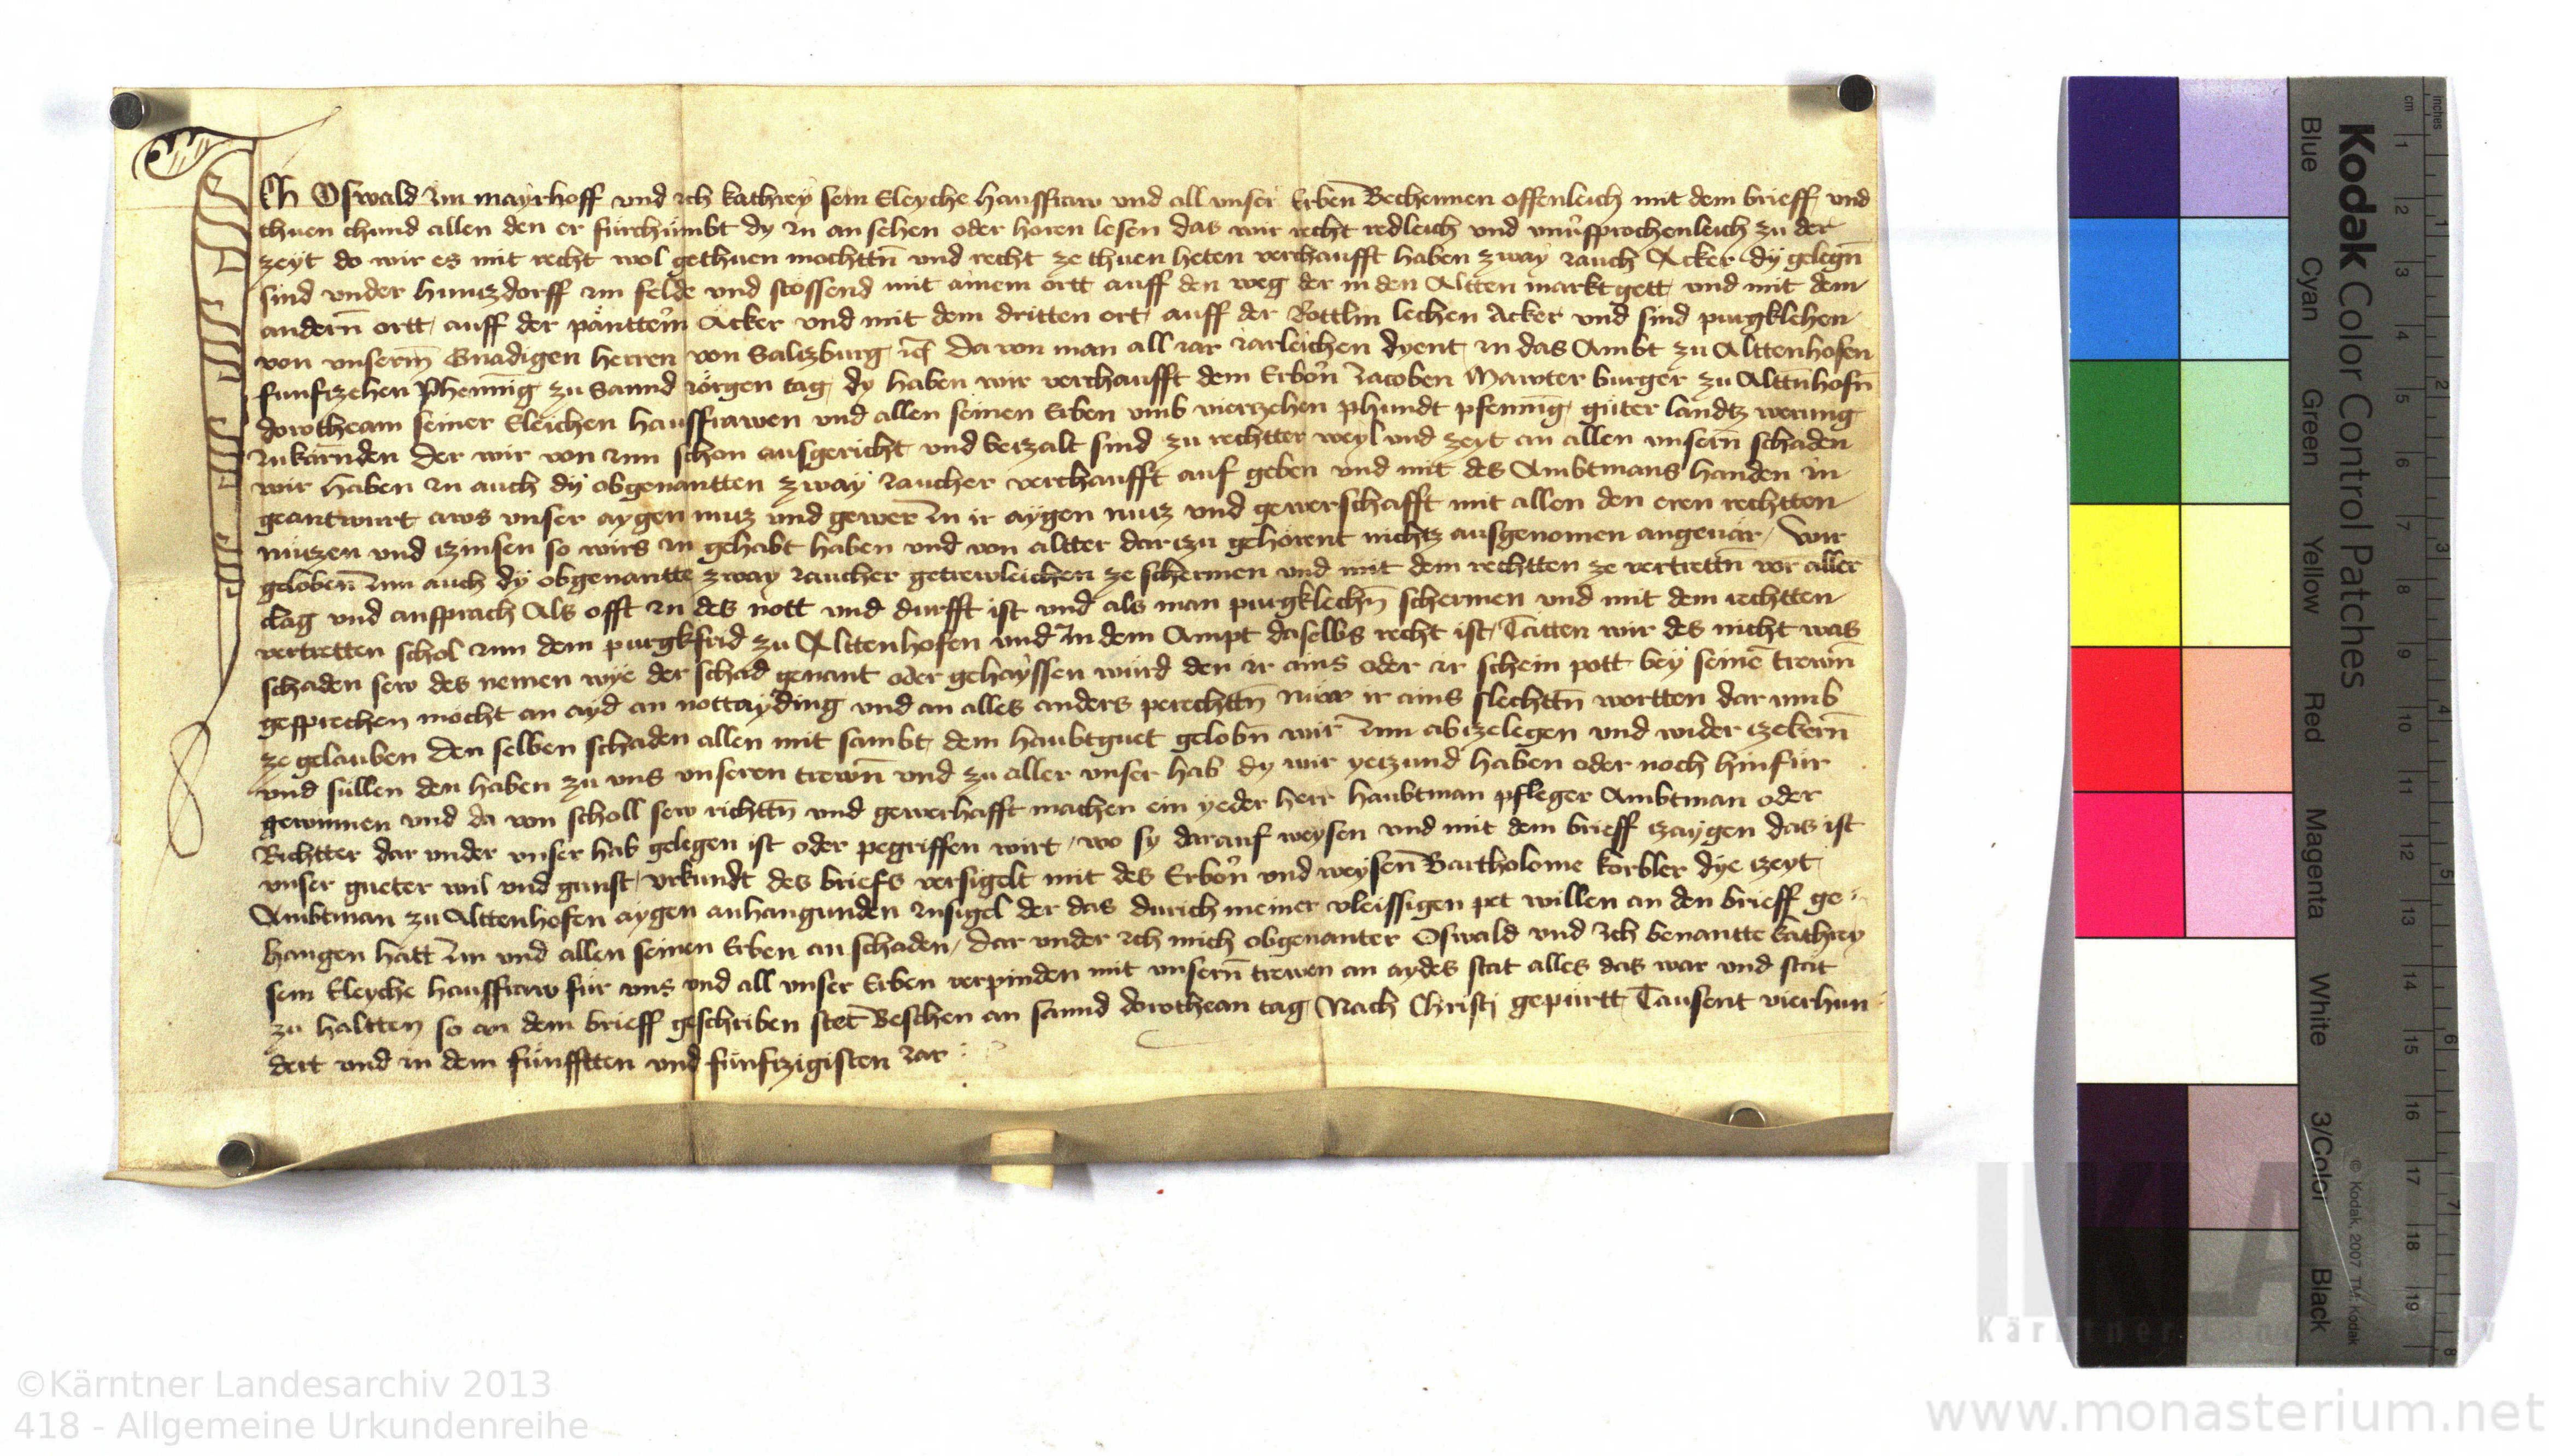 Ich Oswald im mayrhoff vnd ich kathrey sein Eleyche hausfraw vnd all vnser Erben Bechennen offenleich mit dem brieff vnd
thuen chund allen den er fürchümbt dy in an sehen oder horen lesen das wir recht redleich vnd vnuersprochenleich zu der
zeyt do wir es mit recht wol gethuen mochttn vnd recht ze thuen heten verchaufft haben zway rauch Acker dy gelegn
sind vnder hunczdorff im felde vnd stossend mit ainem ortt auff den weg der in den Altten markt gett vnd mit dem
andern ortt auff der Acker vnd mit dem dritten ort auff der lechen Acker vnd sind purgklehen
von vnserm Gnadigen herren von Salczburg etc Da von man all iar iarleichen dyent in das Ambt zu Alttenhofen
funfczehen Phenning zu Sannd iörgen tag dy haben wir verchaufft dem Erbern Jacoben Mawter burger zu Alttnhofn
dorotheam seiner Eleichen hausffrawen vnd allen seinen Erben vmb vierczehen phundt pfennig güter landtz werung
in kärnden Der wir von im schon ausgericht vnd beczalt sind zu rechtter weyl vnd zeyt an allen vnsern schaden
wir haben in auch dy obgenantten zway raucher verchaufft auf geben vnd mit des Ambtmans handen in
geantwurt aws vnser aygen nucz vnd gewer in ir aygen nucz vnd gewerschafft mit allen den eren rechtten
nüczen vnd czinsen so wirs in gehabt haben vnd von altter darczu gehörent nichtz ausgenomen angeuär Wir
geloben im auch dy obgenantte zway raucher getrewleichen ze schermen vnd mit dem rechtten ze vertrettn vor aller
clag vnd ansprach Als offt in des nott vnd durfft ist vnd als man purgklechn schermen vnd mit dem rechtten
vertretten schol inn dem purgkfrid zu Alttenhofen vnd in dem Ampt daselbs recht ist Tätten wir des nicht was
schaden sew des nemen wye der schad genant oder gehayssen würd den ir ains oder ir schein pott bey seinen trewn
gesprechen mocht an ayd an nottayding vnd an alles anders perechttn nür ir ains slechttn wortten dar vmb
ze gelauben Den selben schaden allen mit sambt dem haubtguet gelobn wir im abczelegen vnd wider czekern
vnd süllen den haben zu vns vnseren trewn vnd zu aller vnser hab dy wir yeczund haben oder noch hinfür
gewinnen vnd da von scholl sew richttn vnd gewerhafft machen ein yeder herr haubtman pfleger Ambtman oder
Richtter dar vnder vnser hab gelegen ist oder pegriffen wirt wo sy darauf weysen vnd mit dem brieff czaygen das ist
vnser gueter wil vnd gunst vrkundt des briefs versigelt mit des Erbern vnd weysen Bartholome korbler dye czeyt
Ambtman zu Alttenhofen aygen anhangunden insigel der das durich meiner vleissigen pet willen an den brieff ge
hangen hatt im vnd allen seinen Erben an schaden Dar vnder ich mich obgenanter Oswald vnd ich benantte kathrey
sein Eleyche hausffraw für vns vnd all vnser Erben verpinden mit vnsern trewen an aydes stat alles das war vnd stät
zu haltten so an dem brieff geschriben stet Beschen an sannd dorothean tag Nach Christi gepürtt Tausent vierhun
dert vnd in dem fünfftten vnd fünfczigisten iar
Kodak Color Control Patches
Blue Cyan Green Yellow Red Magenta White 3/Color Black
© Kodak, 2007 TM: Kodak
inches 1 2 3 4 5 6 7 8
cm 1 2 3 4 5 6 7 8 9 10 11 12 13 14 15 16 17 18 19
©Kärntner Landesarchiv 2013
418 - Allgemeine Urkundenreihe
www.monasterium.net